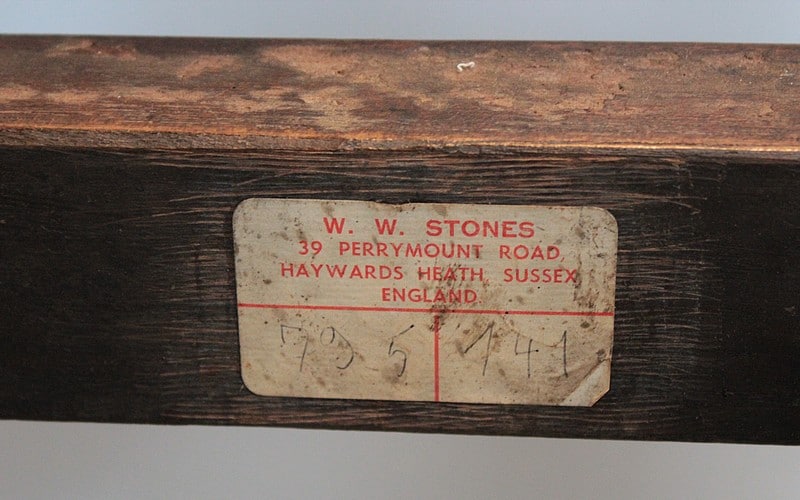 W. W. STONES
39 PERRYMOUNT ROAD,
HAYWARDS HEATH, SUSSEX
ENGLAND.
795 141